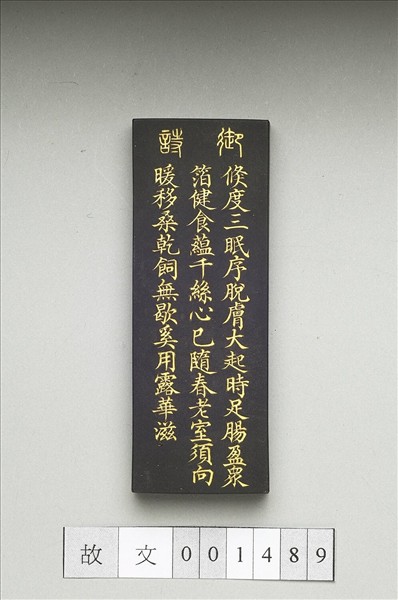 御詩
倐度三眠序脫膚大起時足腸盈衆
箔健食蘊千絲心已隨春老室須向
暖移桑乾飼無歇奚用露華滋
故文001489